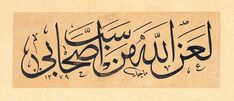 لعن الله من سب أصحابي